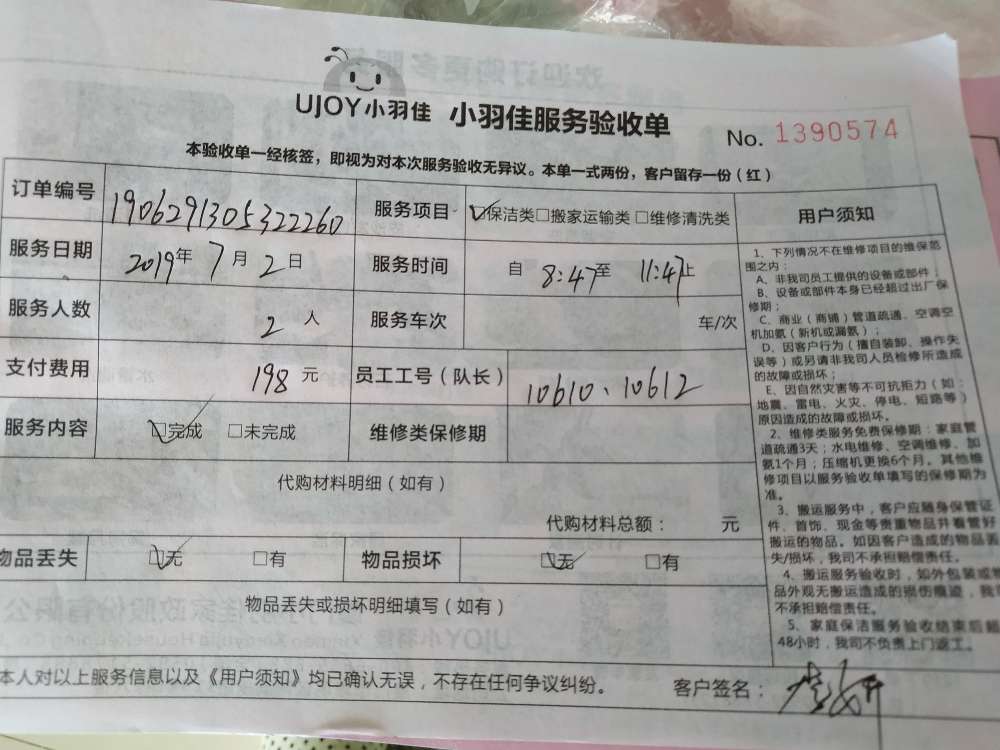 UJOY小羽佳 小羽佳服务验收单 No. 1390574
本验收单一经核签，即视为对本次服务验收无异议。本单一式两份，客户留存一份（红）
订单编号 1906291305322260 服务项目 ☑保洁类□搬家运输类□维修清洗类
服务日期 2019年7月2日 服务时间 自 8:47至 11:47止
服务人数 2人 服务车次 车/次
支付费用 198元 员工工号（队长） 10610、10612
服务内容 ☑完成 □未完成 维修类保修期
代购材料明细（如有）
代购材料总额： 元
物品丢失 ☑无 □有 物品损坏 ☑无 □有
物品丢失或损坏明细填写（如有）
用户须知
1、下列情况不在维修项目的维保范
围之内：
A、非我司员工提供的设备或部件；
B、设备或部件本身已经超过出厂保
修期；
C、商业（商铺）管道疏通、空调空
机加氨（新机或漏氨）；
D、因客户行为（擅自装卸、操作失
误等）或另请非我司人员检修所造成
的故障或损坏；
E、因自然灾害等不可抗拒力（如：
地震、雷电、火灾、停电、短路等）
原因造成的故障或损坏。
2、维修类服务免费保修期：家庭管
道疏通3天；水电维修、空调维修、加
氨1个月；压缩机更换6个月。其他维
修项目以服务验收单填写的保修期为
准。
3、搬运服务中，客户应随身保管证
件、首饰、现金等贵重物品并看管好
搬运的物品。如因客户造成的物品丢
失/损坏，我司不承担赔偿责任。
4、搬运服务验收时，如外包装或物
品外观无搬运造成的损伤痕迹，我
不承担赔偿责任。
5、家庭保洁服务验收结束后超
48小时，我司不负责上门返工。
本人对以上服务信息以及《用户须知》均已确认无误，不存在任何争议纠纷。 客户签名：